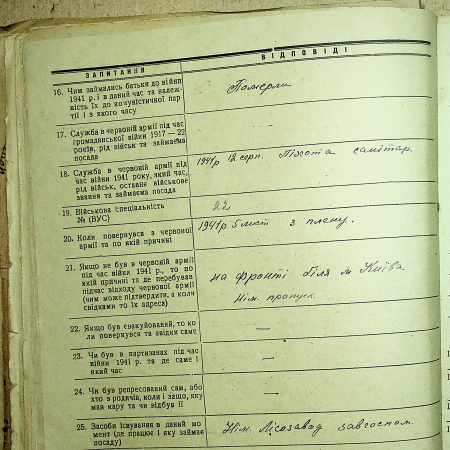 ЗАПИТАННЯ
ВІДПОВІДІ
16. Чим займались батьки до війни
1941 р. і в даний час та належ-
ність їх до комуністичної пар-
тії і з якого часу
Померли
17. Служба в червоній армії під час
громадянської війни 1917—22
років, рід військ та займаєма
посада
—
18. Служба в червоній армії під
час війни 1941 року, який час,
рід військ, останнє військове
звання та займаєма посада
1941 р 12 серп. Піхота санітар.
19. Військова спеціальність
№ (ВУС)
22
20. Коли повернувся з червоної
армії та по якій причині
1941 р 5 лист з плену.
21. Якщо не був в червоній армії
під час війни 1941 р., то по
якій причині та де перебував
підчас відходу червоної армії
(чим може підтвердити, а коли
свідками то їх адреса)
на фронті біля м Київа
Нім. пропуск
22. Якщо був евакуйований, то ко-
ли повернувся та звідки саме
—
23. Чи був в партизанах під час
війни 1941 р. та де саме і
який час
—
24. Чи був репресований сам, або
хто з родичів, коли і защо, яку
мав кару та чи відбув її
—
25. Засоби існування в даний мо-
мент (де працює і яку займає
посаду)
Нім. Лісозавад завгоспом.